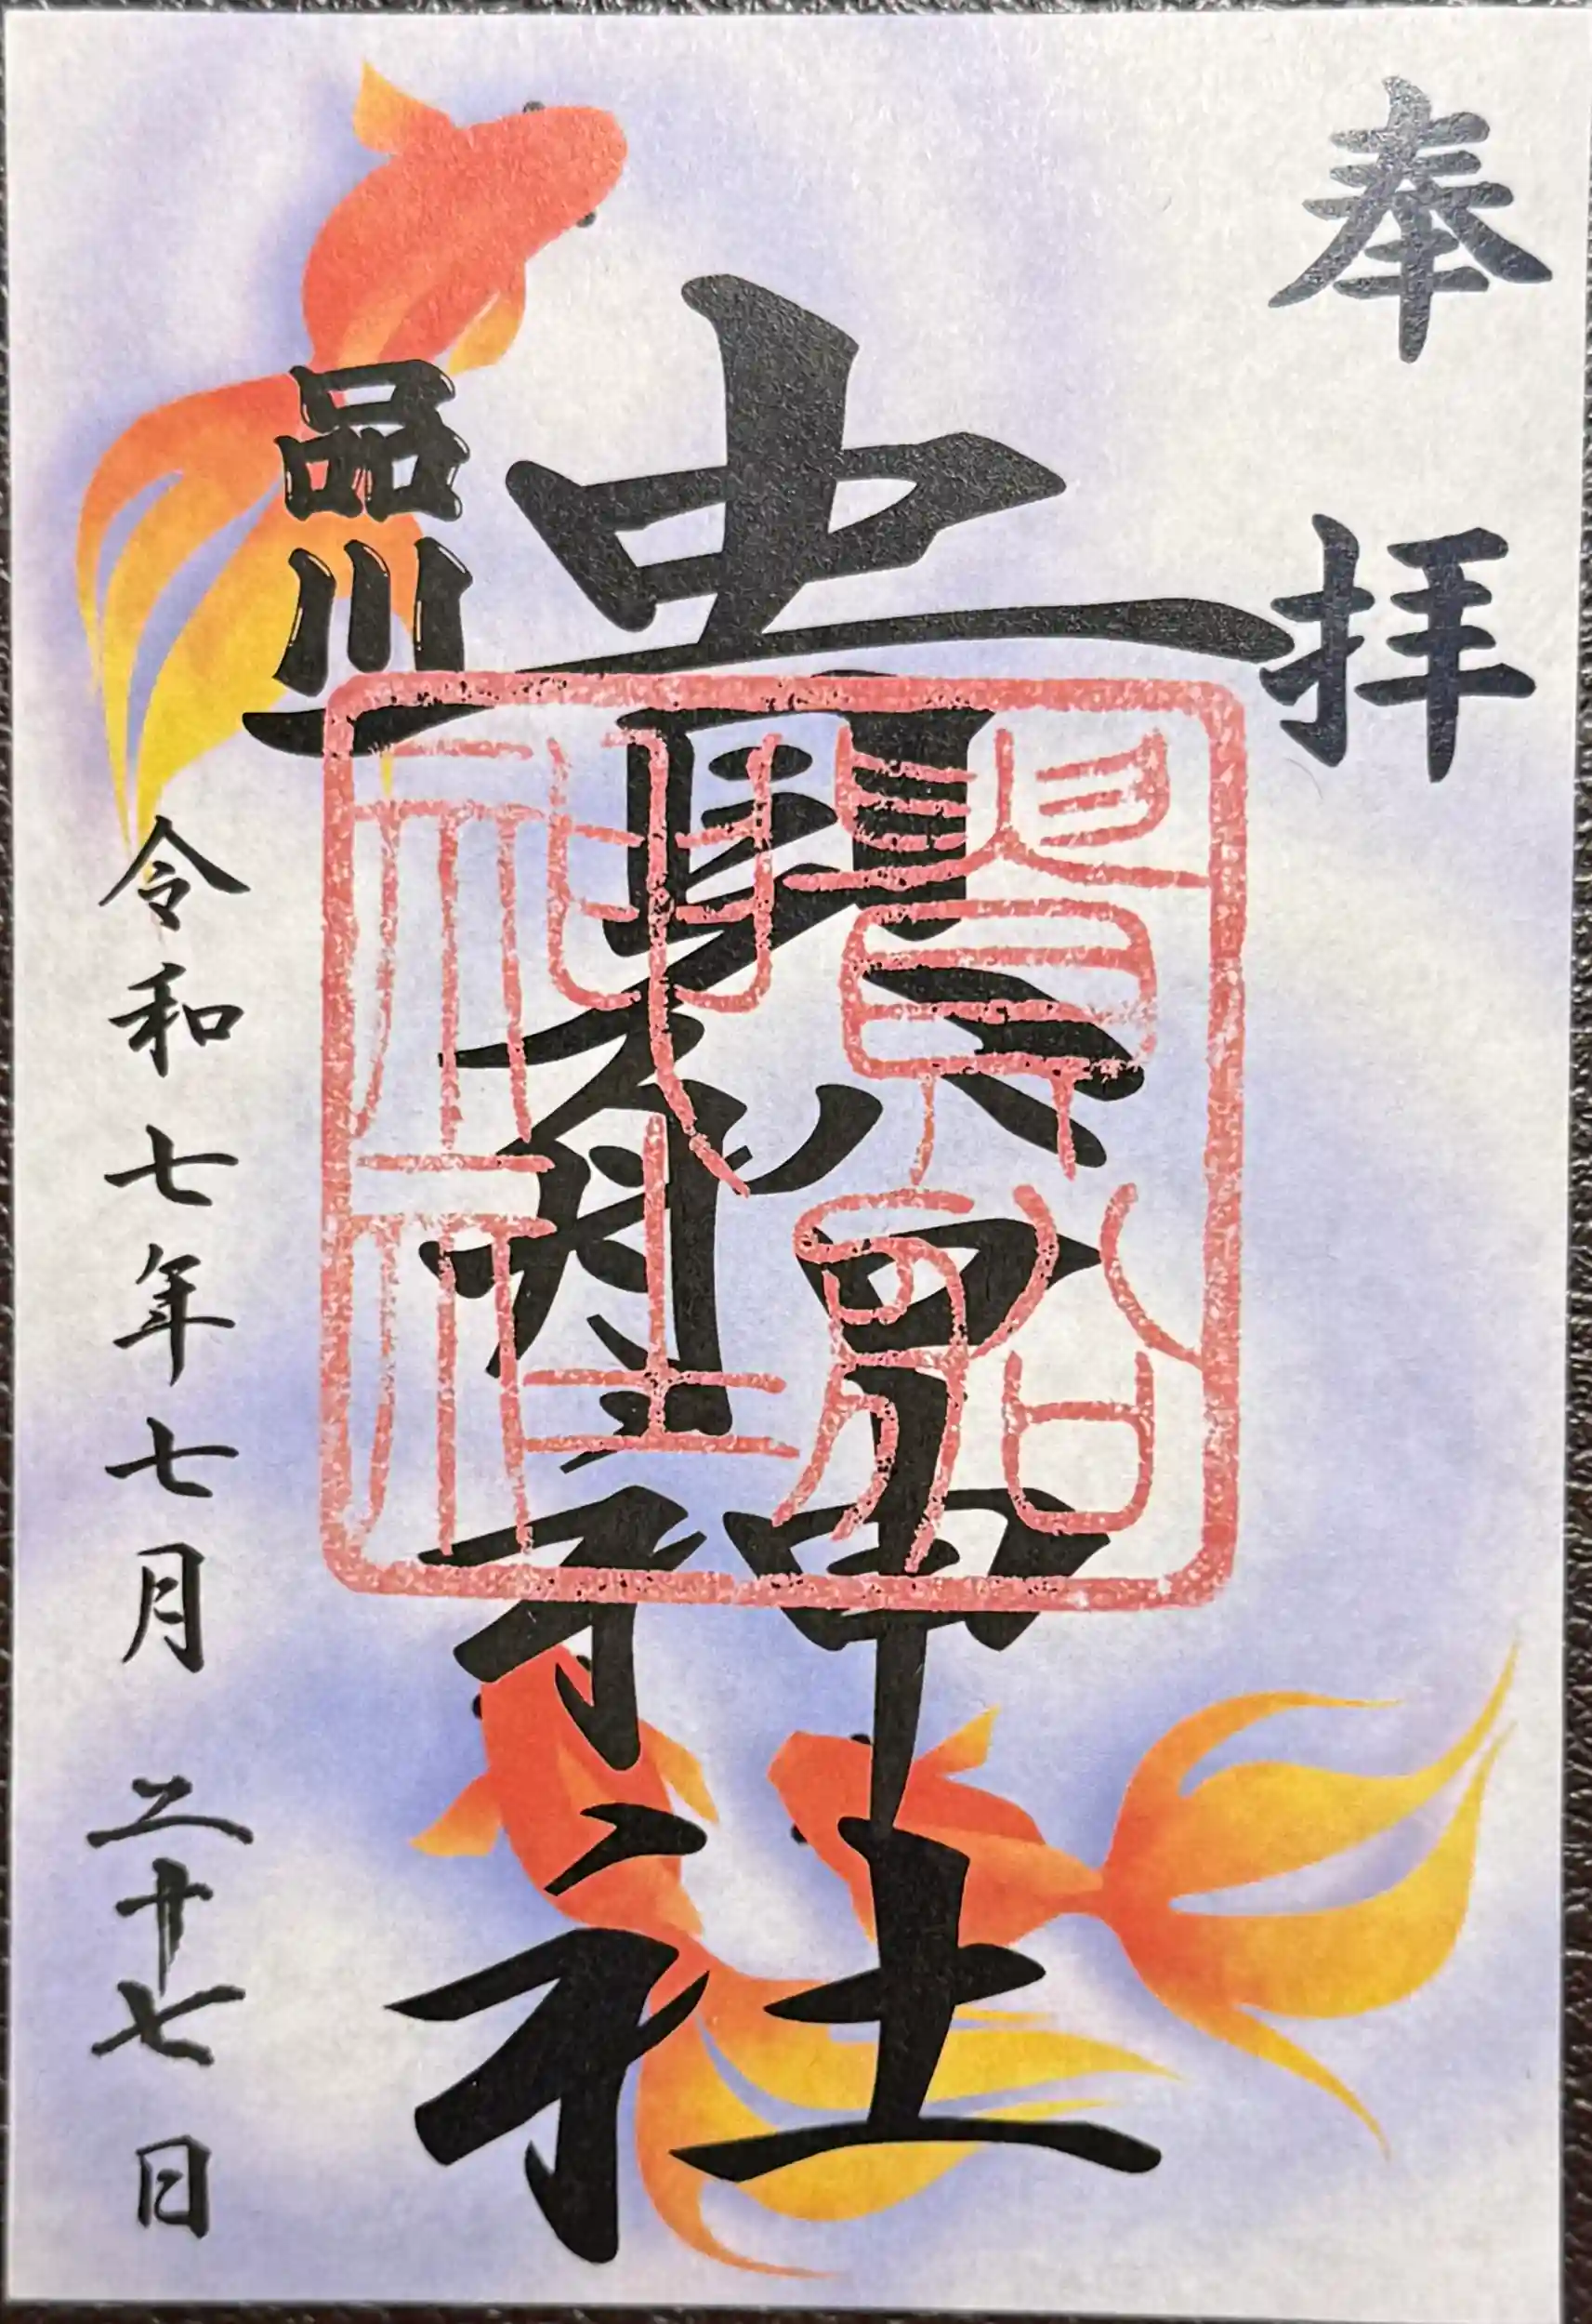 奉拝
貴船神社
品川
令和七年七月二十七日
貴船
神社